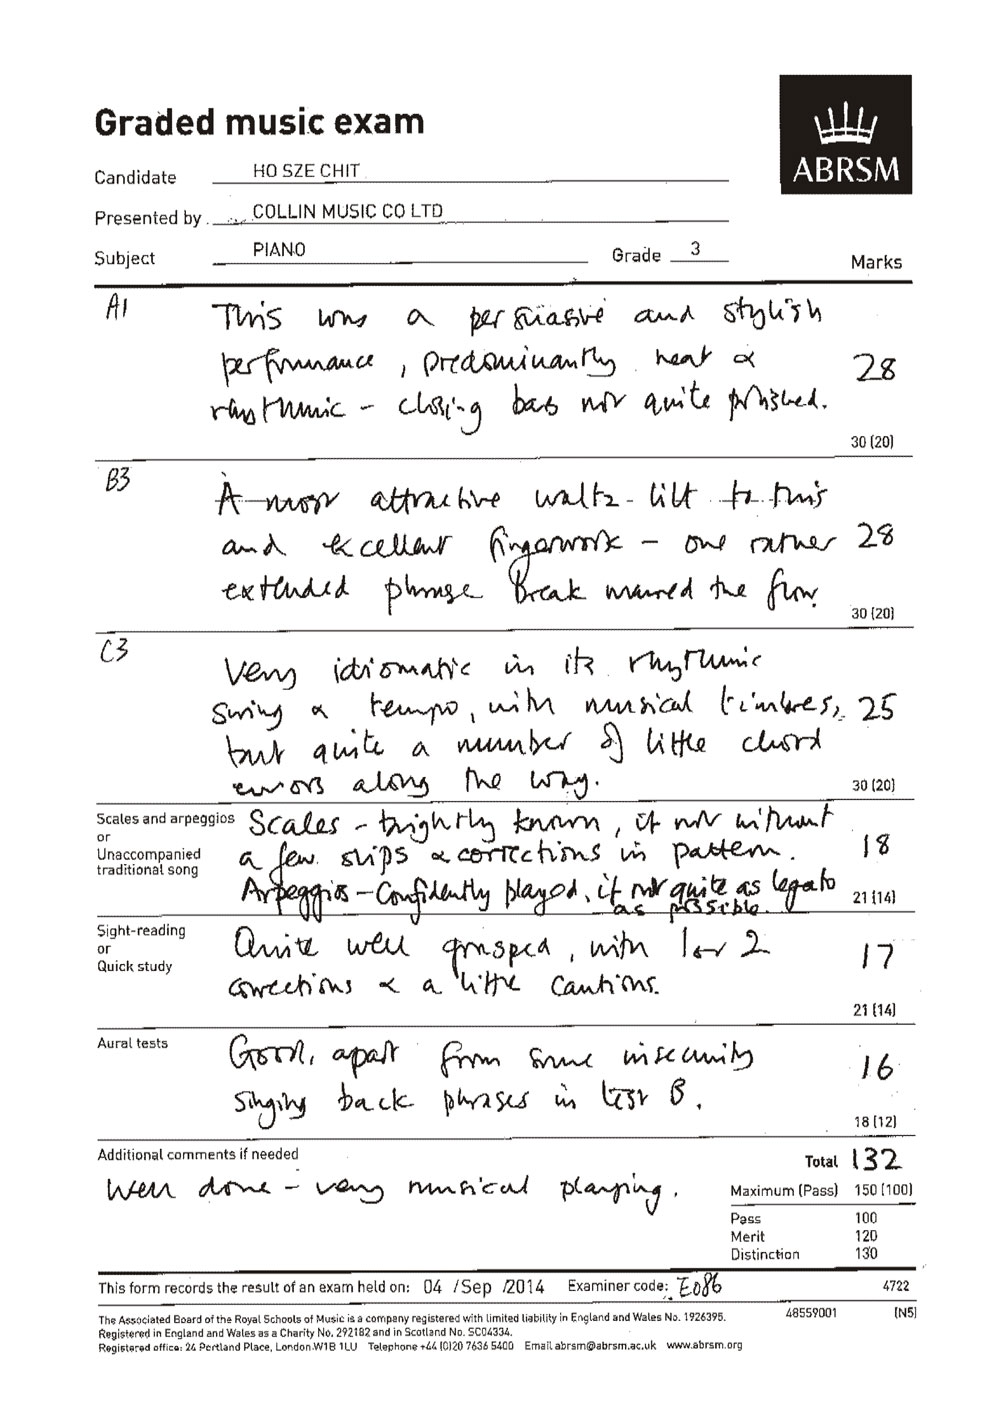 Graded music exam
ABRSM
Candidate HO SZE CHIT
Presented by COLLIN MUSIC CO LTD
Subject PIANO Grade 3 Marks
A1
This was a persuasive and stylish
performance, predominantly neat &
rhythmic - closing bars not quite polished.
28
30 (20)
B3
A most attractive waltz-lilt to this
and excellent fingerwork - one rather
extended phrase break marred the flow.
28
30 (20)
C3
Very idiomatic in its rhythmic
swing & tempo, with musical timbres,
but quite a number of little chord
errors along the way.
25
30 (20)
Scales and arpeggios
or
Unaccompanied
traditional song
Scales - brightly known, if not without
a few slips & corrections in pattern.
Arpeggios - Confidently played, if not quite as legato
as possible.
18
21 (14)
Sight-reading
or
Quick study
Quite well grasped, with 1 or 2
corrections & a little cautions.
17
21 (14)
Aural tests
Good, apart from some insecurity
singing back phrases in test B.
16
18 (12)
Additional comments if needed
Well done - very musical playing.
Total 132
Maximum (Pass) 150 (100)
Pass 100
Merit 120
Distinction 130
This form records the result of an exam held on: 04 /Sep /2014 Examiner code: E086 4722
The Associated Board of the Royal Schools of Music is a company registered with limited liability in England and Wales No. 1926395. 48559001 (N5)
Registered in England and Wales as a Charity No. 292182 and in Scotland No. SC04334.
Registered office: 24 Portland Place, London W1B 1LU Telephone +44 (0)20 7636 5400 Email abrsm@abrsm.ac.uk www.abrsm.org